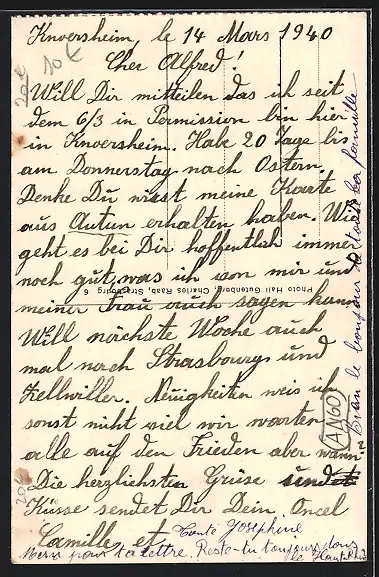 Knoersheim, le 14 Mars 1940
Cher Alfred!
Will Dir mitteilen das ich seit
dem 6/3 in Permission bin hier
in Knoersheim. Habe 20 Tage bis
am Donnerstag nach Ostern.
Denke Du wirst meine Karte
aus Autun erhalten haben. Wie
geht es bei Dir hoffentlich immer
noch gut was ich von mir und
meiner Frau auch sagen kann
Will nächste Woche auch
mal nach Strasbourg und
Zellwiller. Neuigkeiten weis ich
sonst nicht viel wir warten
alle auf den Frieden aber wann?
Die herzlichsten Grüse
Küsse sendet Dir Dein Oncel
Camille et Tante Joséphine
Merci pour ta lettre. Reste-tu toujours dans
le Haut-Rhin
bien le bonjour de toute la famille
Photo Hall Gutenberg, Charles Raab, Strasbourg 6
ANGO
20 €
10 €
20